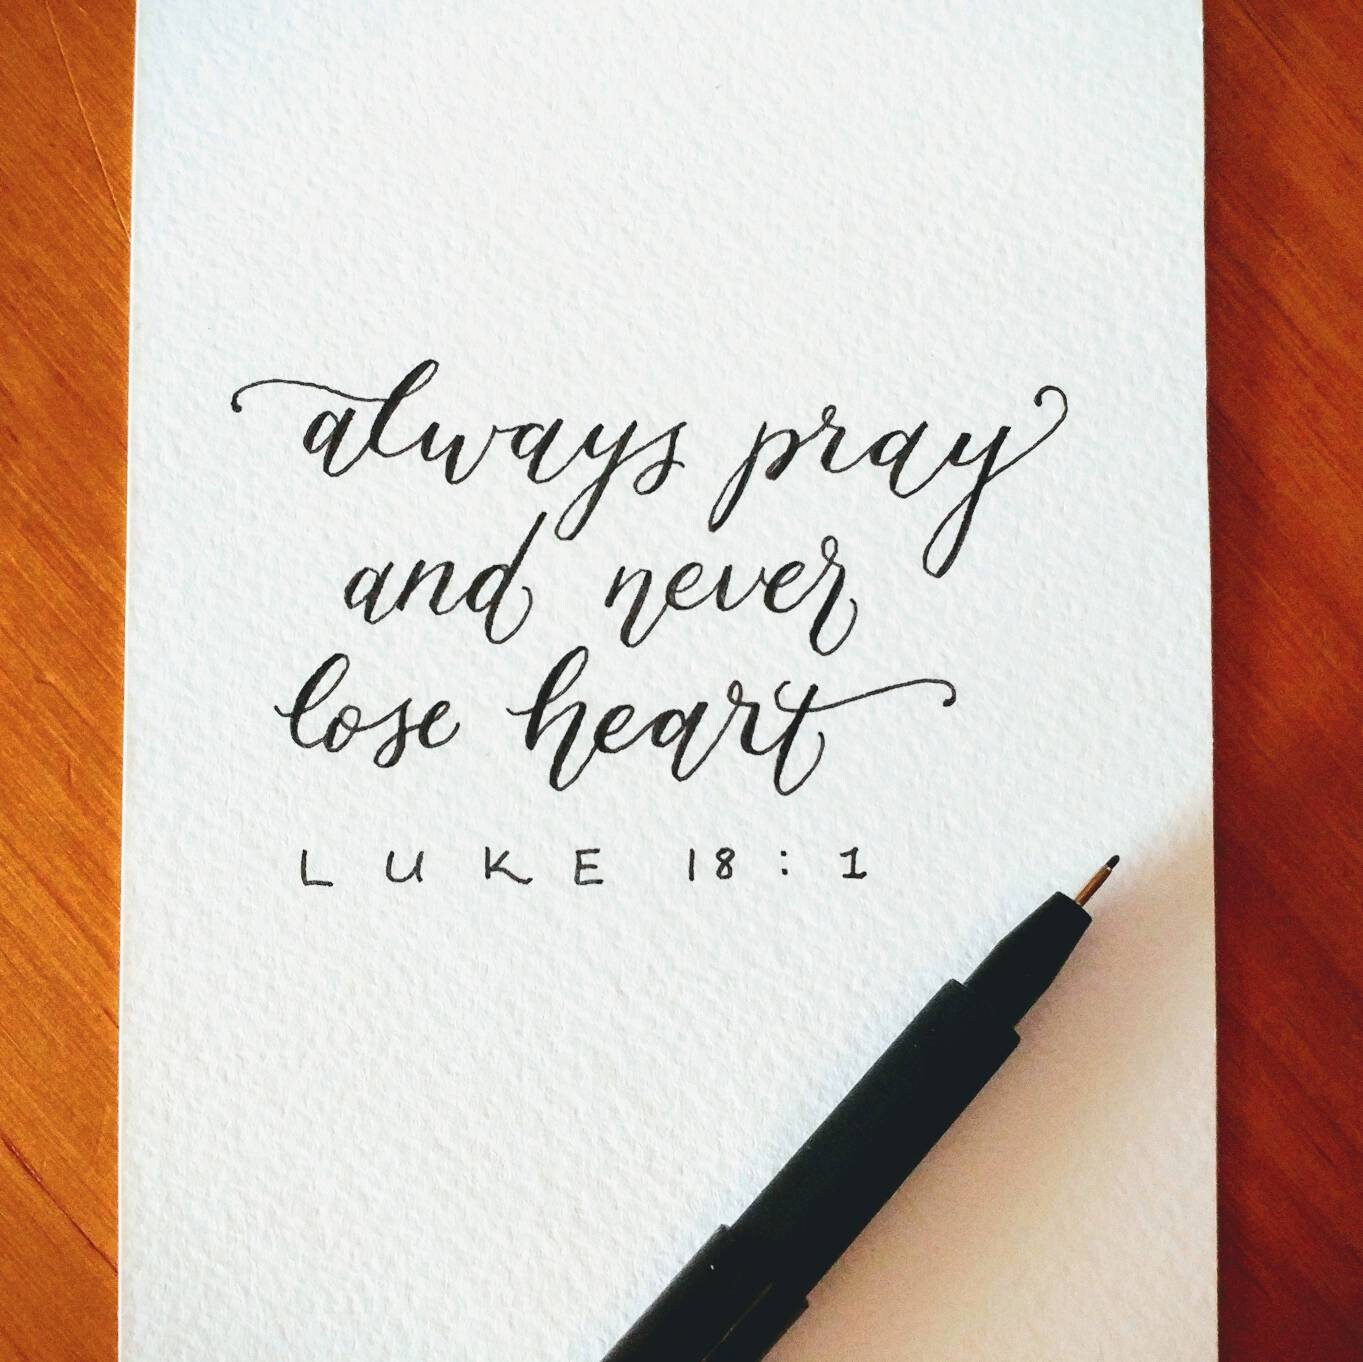 always pray
and never
lose heart
LUKE 18:1